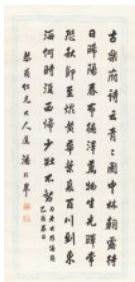 古樂府詩云青青園中朝露待
日晞陽春布德澤萬物生光暉常
恐秋節至焜黃華葉衰百川到東
海何時復西歸少壯不努
力老大徒傷悲
仁兄大人屬 潘齡皋